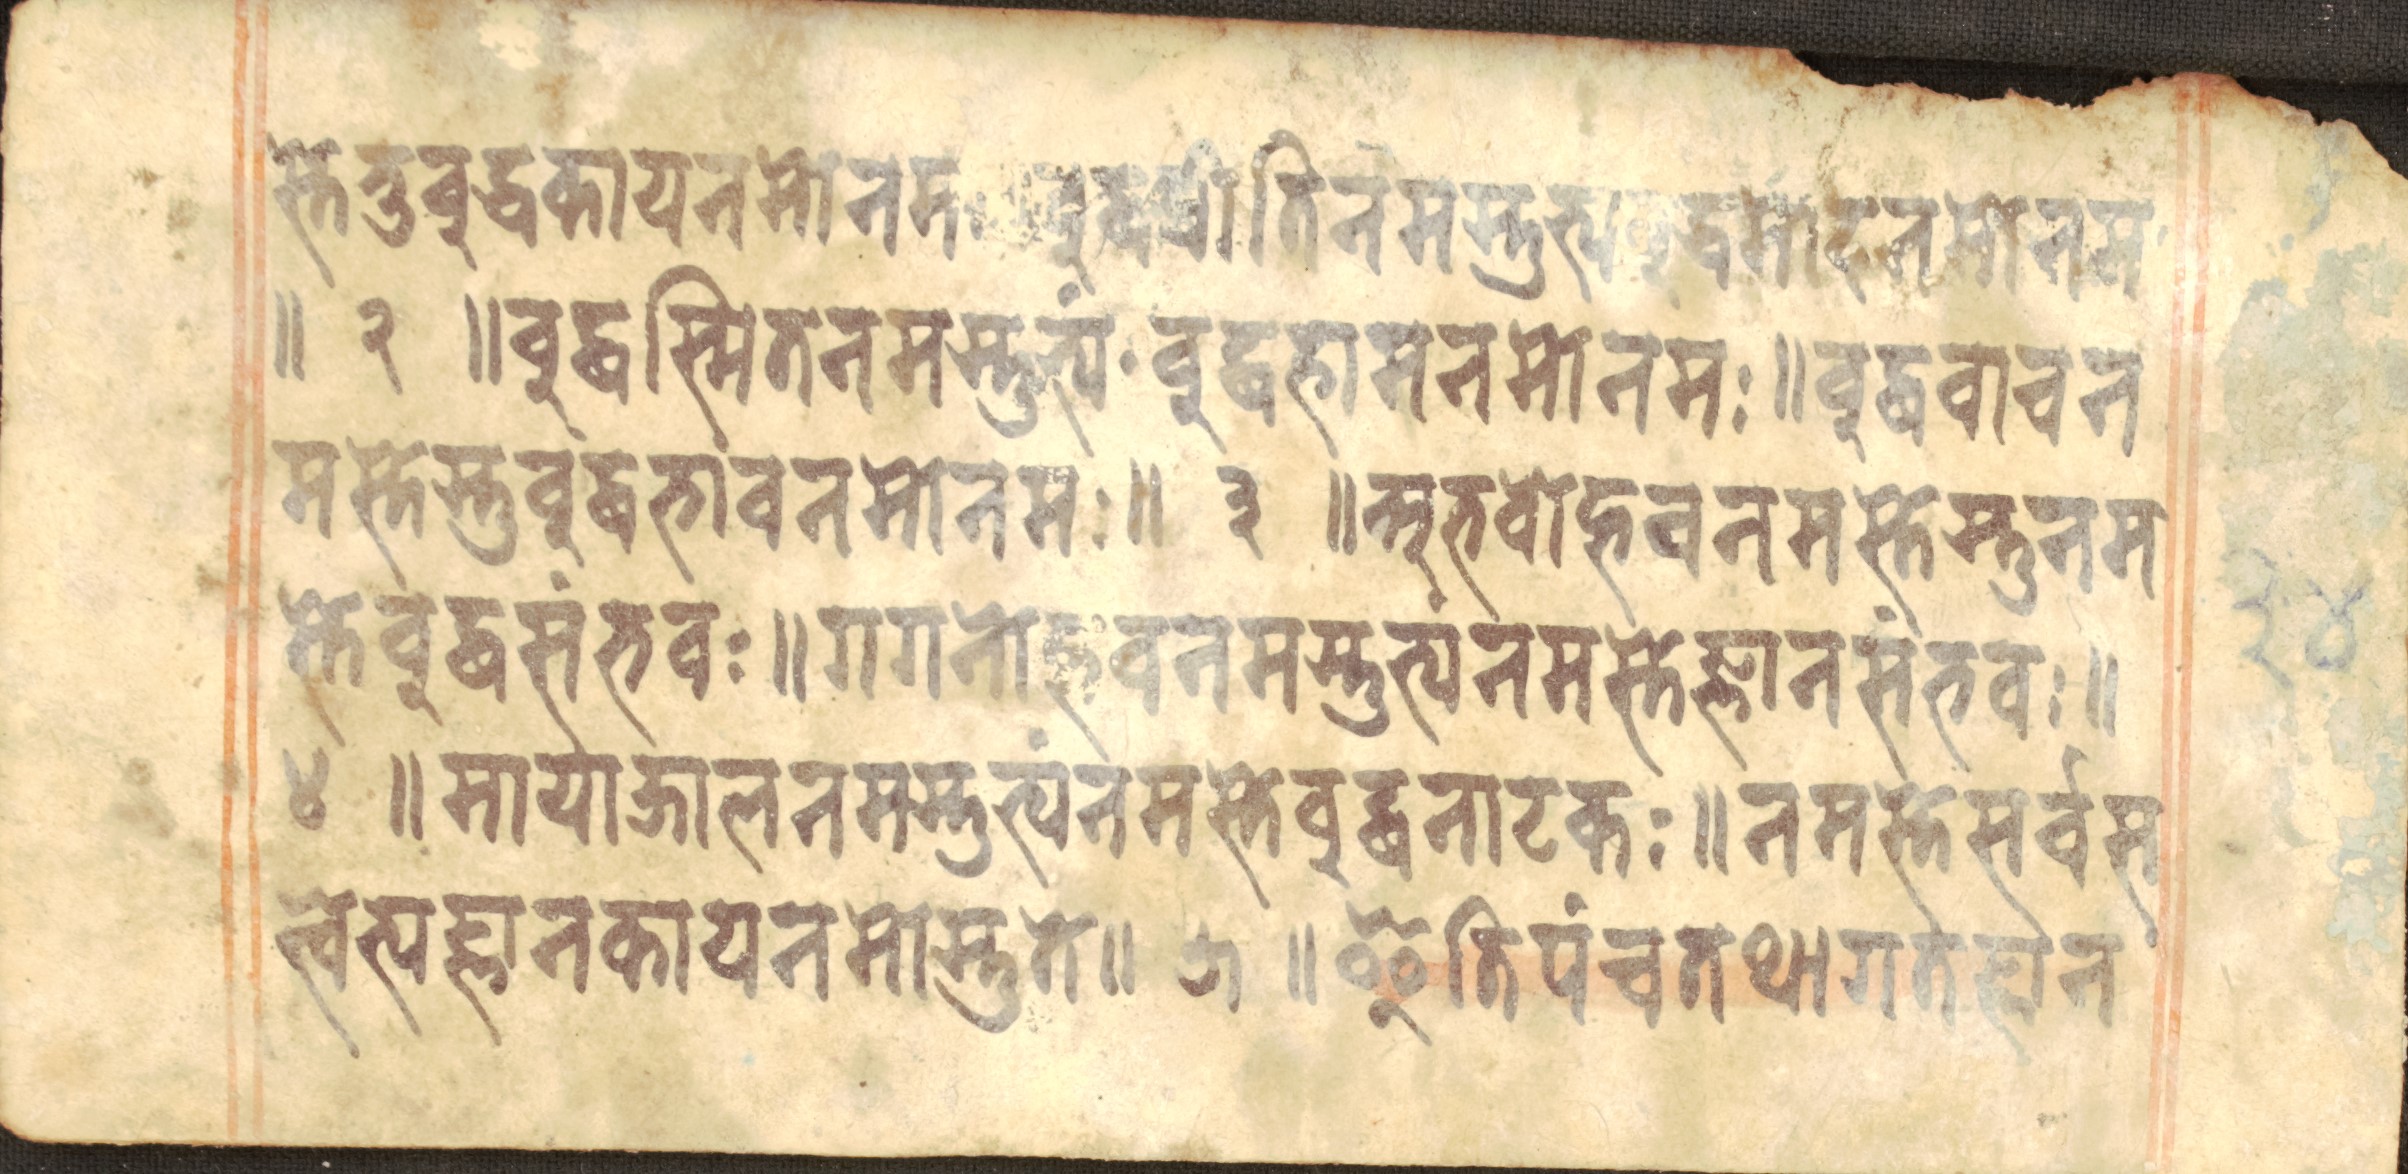 स्तेतुबुद्धकायनमोनमः॥बुद्धप्रीतिनमस्तुभ्यंबुद्धमोदनमोनमः
॥ २ ॥बुद्धस्मितनमस्तुभ्यं·बुद्धहासनमोनमः॥बुद्धवाचन
मस्तेस्तुबुद्धभावनमोनमः॥ ३ ॥अभवोद्भवनमस्तेस्तुनम
स्तेबुद्धसंभवः॥गगनोद्भवनमस्तुभ्यंनमस्तेज्ञानसंभवः॥
४ ॥मायाजालनमस्तुभ्यंनमस्तेबुद्धनाटकः॥नमस्तेसर्वस
र्वेभ्यज्ञानकायनमोस्तुते॥ ५ ॥इतिपंचतथागतज्ञान
२४